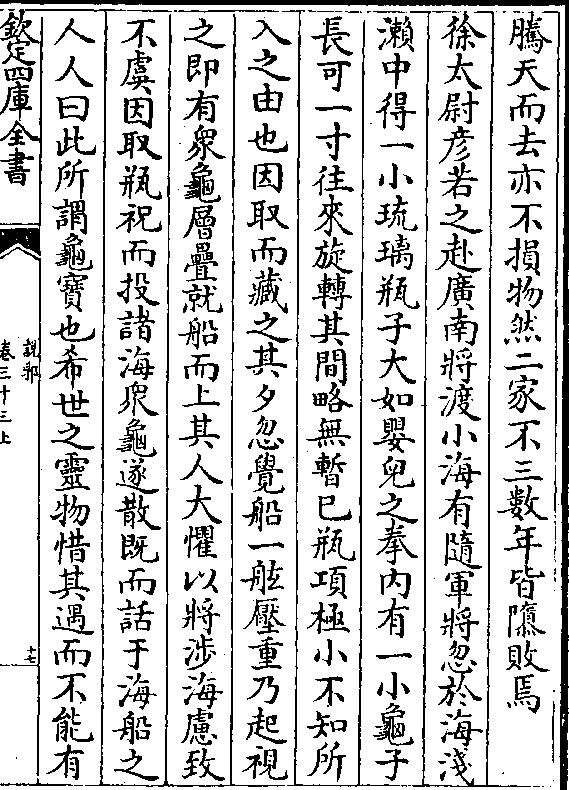 騰天而去亦不損物然二家不三數年皆隳敗焉
徐太尉彦若之赴廣南將渡小海有隨軍將忽於海淺
瀨中得一小琉璃瓶子大如嬰兒之拳内有一小龜子
長可一寸往來旋轉其間略無暫已瓶項極小不知所
入之由也因取而藏之其夕忽覺船一舷壓重乃起視
之即有衆龜層疊就船而上其人大懼以將涉海慮致
不虞因取瓶祝而投諸海衆龜遂散既而話于海船之
人人曰此所謂龜寶也希世之靈物惜其遇而不能有
欽定四庫全書
說郛
卷三十三上
十七